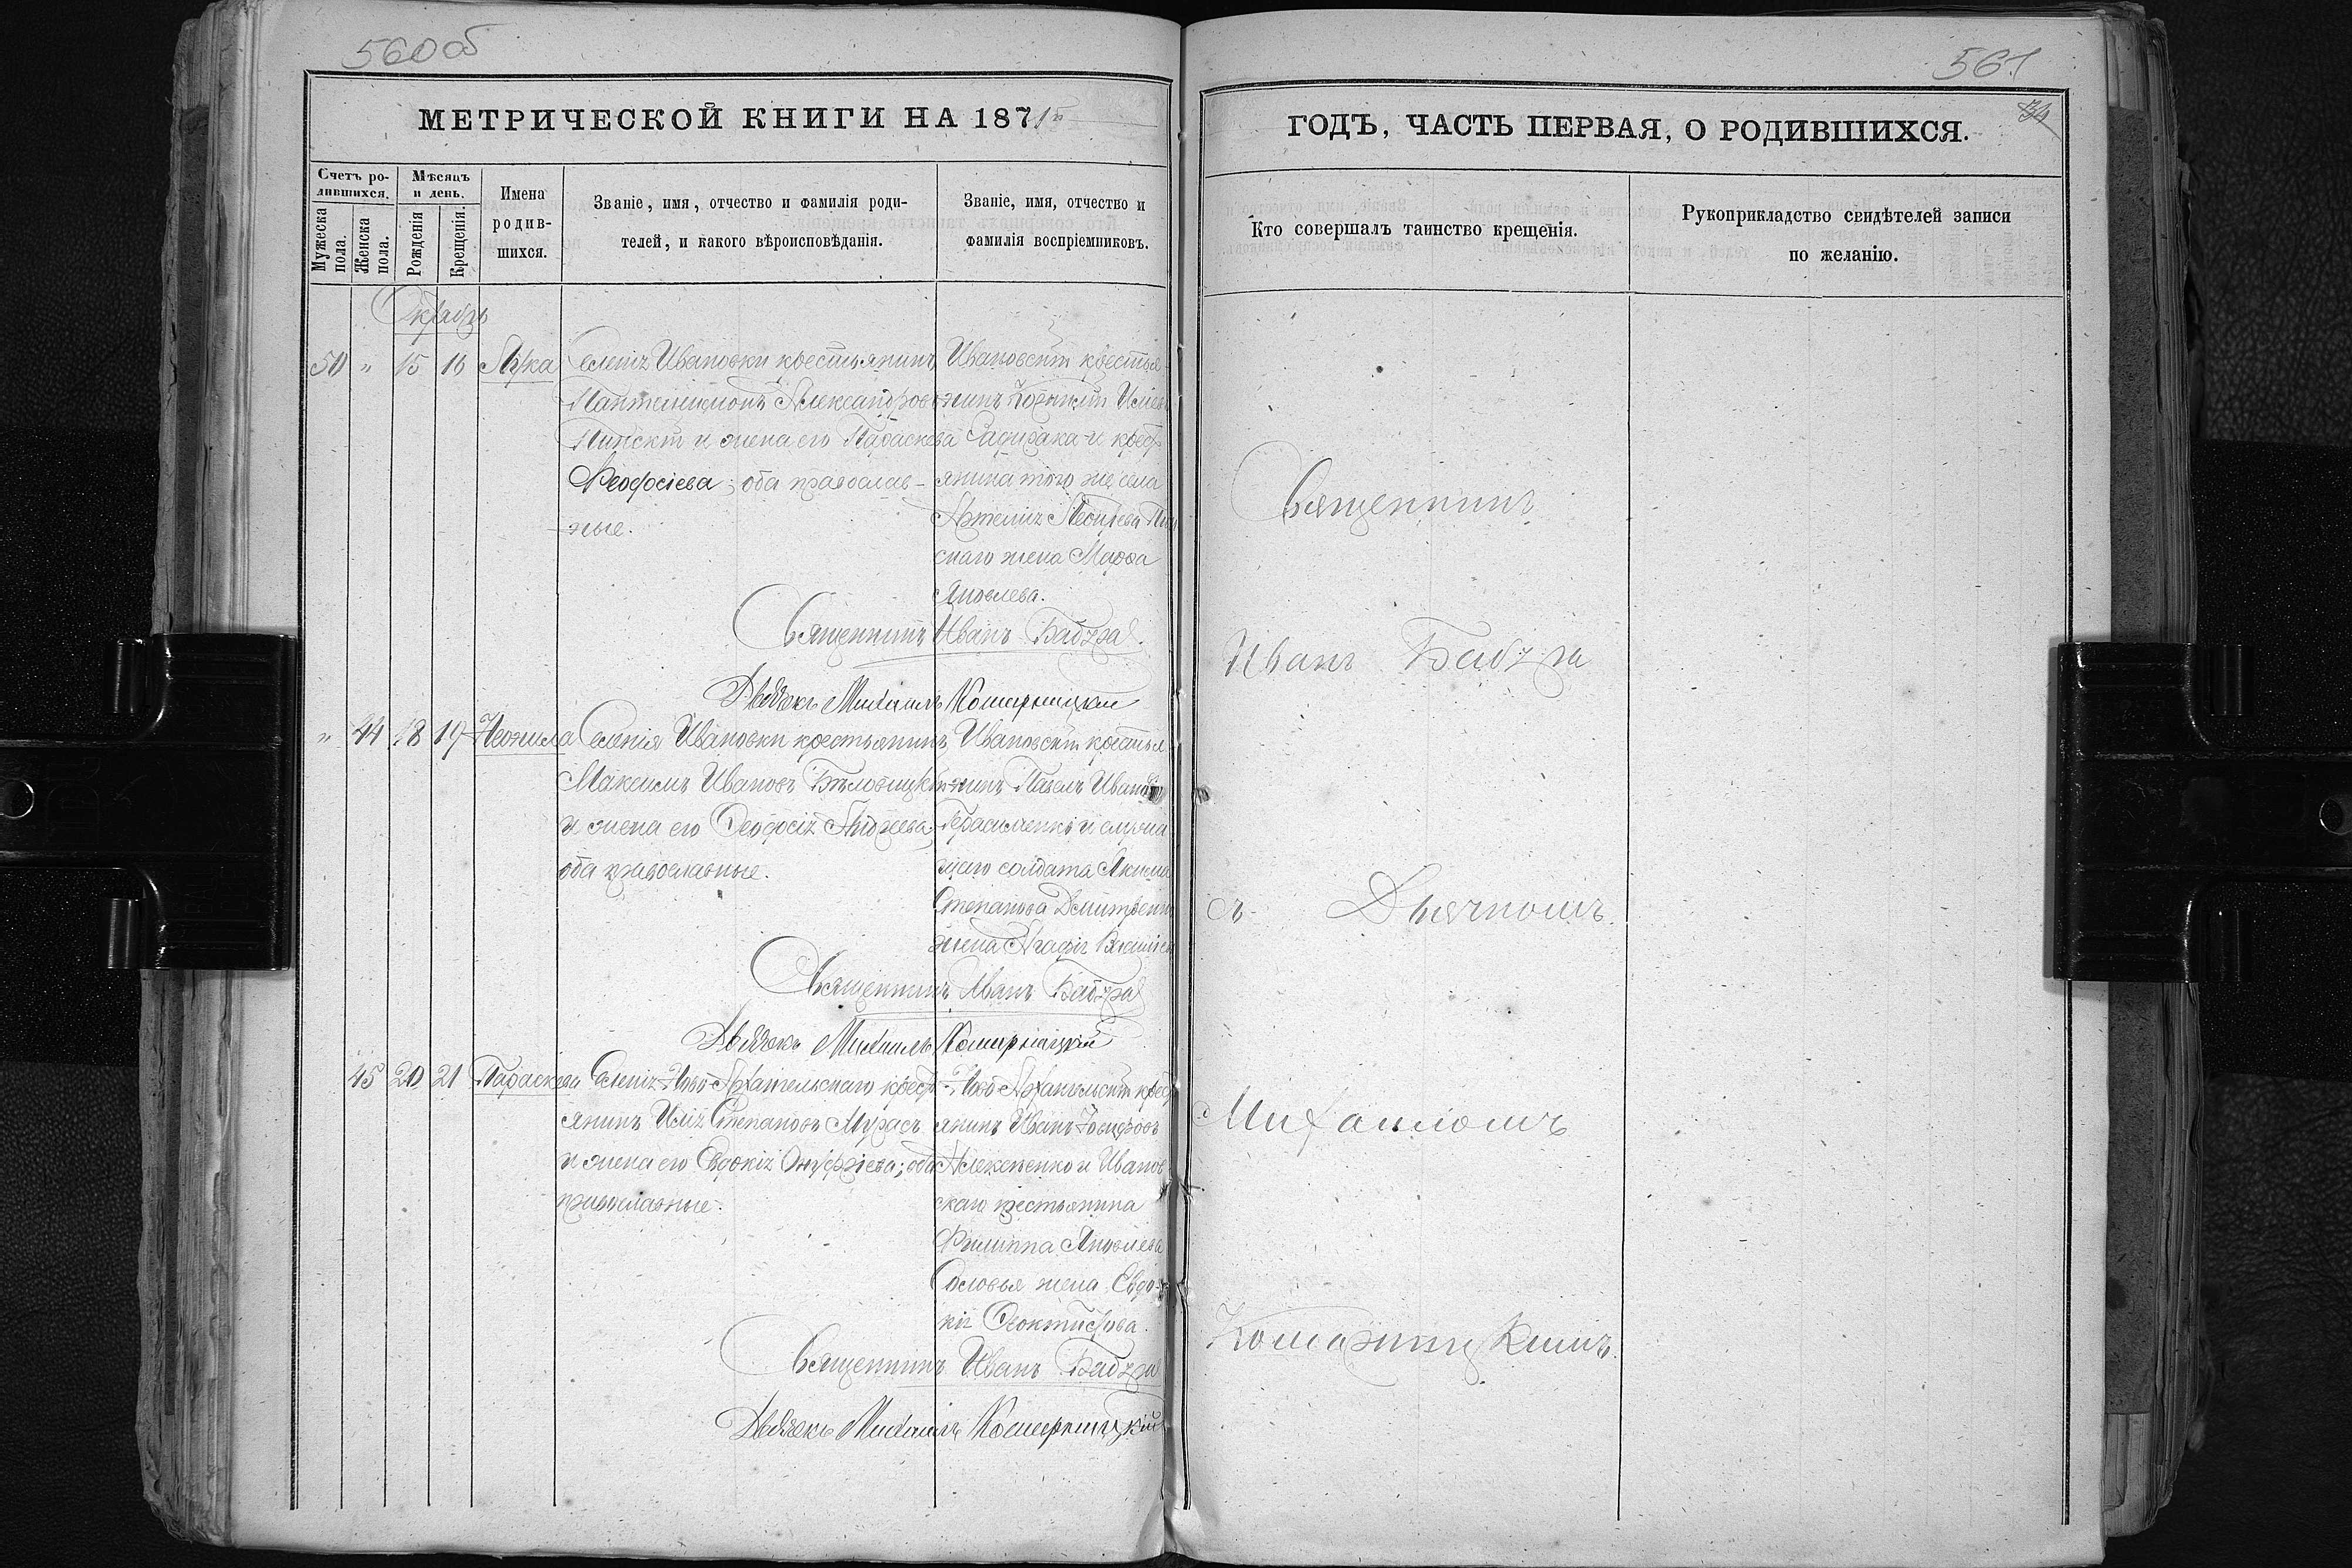 560об
МЕТРИЧЕСКОЙ КНИГИ НА 1871й
Счетъ ро-
дившихся.
Мужеска
пола.
Женска
пола.
Мѣсяцъ
и день.
Рожденія
Крещенія.
Имена
родив-
шихся.
Званіе, имя, отчество и фамилія роди-
телей, и какого вѣроисповѣданія.
Званіе, имя, отчество и
фамилія воспріемниковъ.
Октябрь
50 " 15 16 Лука
Селенія Ивановки крестьянинъ
Пантелеимонъ Александровъ
Пинскій и жена его Параскева
Феодосіева; оба православ-
ные.
Ивановскій крестья-
нинъ
и крест-
янина того же села
жена Марфа
Яковлева.
Священникъ Иванъ Бабура
Дьячокъ Михаилъ Комарницкій
" 44 18 19 Неонила
Селенія Ивановки крестьянинъ
Максимъ Ивановъ Бѣловицкій
и жена его Феодосія
оба православные.
Ивановскій крестья-
нинъ Павелъ Ивановъ
Герасименко и
солдата Якима
Степанова
жена Агафія
Священникъ Иванъ Бабура
Дьячокъ Михаилъ Комарницкій
45 20 21 Параскева
Селенія Ново-Архангельскаго крест-
янинъ Илія Степановъ Мурасъ
и жена его Евдокія Онуфріева; оба
православные.
Ново Архангельскій крест-
янинъ Иванъ
Алексѣенко и Иванов-
скаго крестьянина
Филиппа Яковлева
Соловья жена Евдо-
кія Феоктистова.
Священникъ Иванъ Бабура
Дьячокъ Михаилъ Комарницкій
561
34
ГОДЪ, ЧАСТЬ ПЕРВАЯ, О РОДИВШИХСЯ.
Кто совершалъ таинство крещенія.
Рукоприкладство свидѣтелей записи
по желанію.
Священникъ
Иванъ Бабура
съ Дьячкомъ
Михаиломъ
Комарницкимъ.